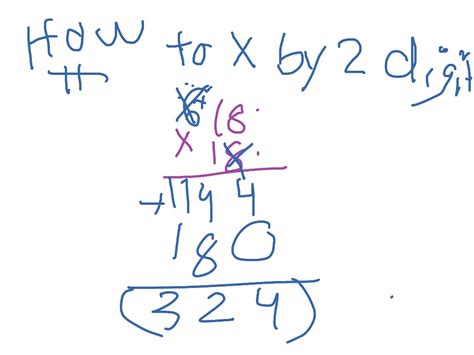 How to x by 2 digit
18
x 18
+ 144
180
(324)